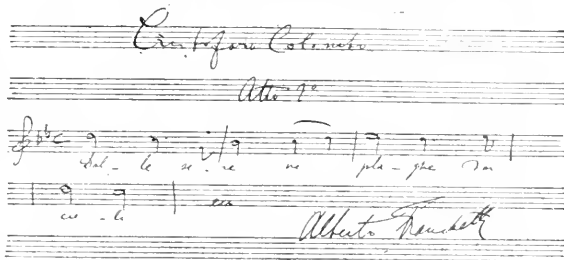 Cristoforo Colombo
Atto 1º
Dal - le se - re ne pla - ghe dei
cie - li ecc
Alberto Franchetti